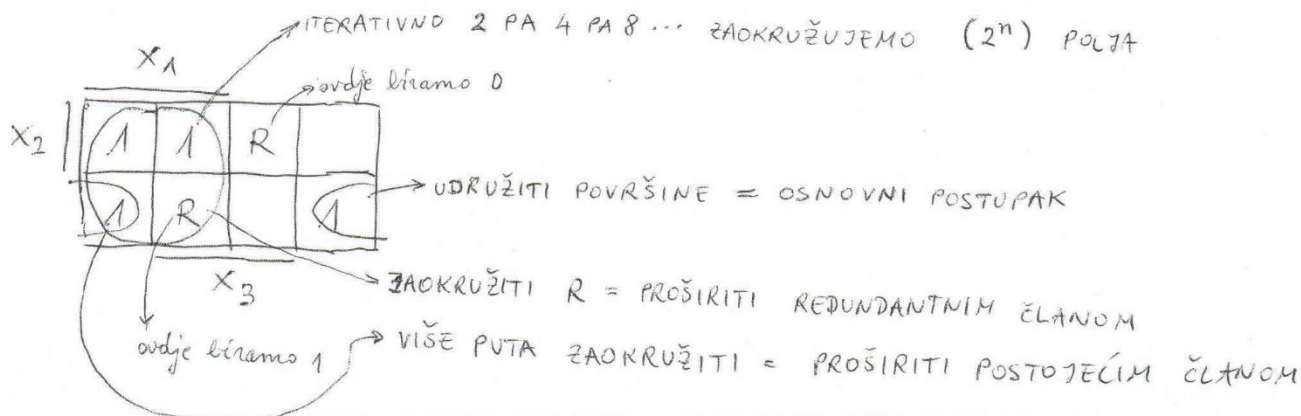 ITERATIVNO 2 PA 4 PA 8 ... ZAOKRUŽUJEMO (2ⁿ) POLJA
X₁
ovdje biramo 0
X₂
1 1 R
UDRUŽITI POVRŠINE = OSNOVNI POSTUPAK
1 R 1
X₃
ZAOKRUŽITI R = PROŠIRITI REDUNDANTNIM ČLANOM
ovdje biramo 1
VIŠE PUTA ZAOKRUŽITI = PROŠIRITI POSTOJEĆIM ČLANOM